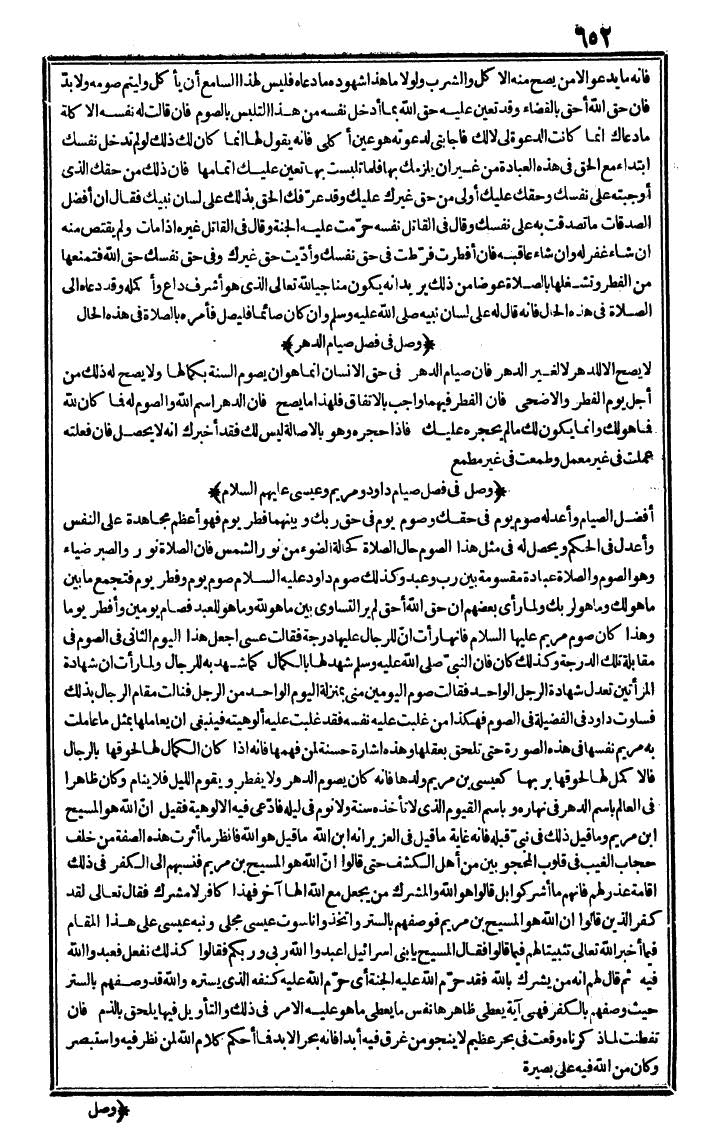 ٦٥٢
فانه ما يدعو الا من يصح منه الاكل والشرب ولولا ما هذا شهوده ما دعاه فليس لهذا السامع أن يأكل وليتم صومه ولا بد
فان حق الله أحق بالقضاء وقد تعين عليه حق الله بما أدخل نفسه من هذا التلبس بالصوم فان قالت له نفسه الاكلة
ما دعاك انما كانت الدعوة لى لالك فاجابتى لدعوته هو عين أكلى فانه يقول لها انما كان لك ذلك لو لم تدخل نفسك
ابتداء مع الحق فى هذه العبادة من غير ان يلزمك بها فلما تلبست بها تعين عليك اتمامها فان ذلك من حقك الذى
أوجبته على نفسك وحقك عليك أولى من حق غيرك عليك وقد عرّفك الحق بذلك على لسان نبيك فقال ان أفضل
الصدقات ما تصدقت به على نفسك وقال فى القاتل نفسه حرّمت عليه الجنة وقال فى القاتل غيره اذا مات ولم يقتص منه
ان شاء غفر له وان شاء عاقبه فان أفطرت فرّطت فى حق نفسك وأدّيت حق غيرك وفى حق نفسك حق الله فتمنعها
من الفطر وتشغلها بالصلاة عوضا من ذلك يريد انه يكون مناجيا لله تعالى الذى هو أشرف داع وأكمله وقد دعاه الى
الصلاة فى هذه الحال فانه قال له على لسان نبيه صلى الله عليه وسلم وان كان صائما فليصل فأمره بالصلاة فى هذه الحال
﴿وصل فى فصل صيام الدهر﴾
لا يصح الا للدهر لا لغير الدهر فان صيام الدهر فى حق الانسان انما هو ان يصوم السنة بكمالها ولا يصح له ذلك من
أجل يوم الفطر والاضحى فان الفطر فيهما واجب بالاتفاق فلهذا ما يصح فان الدهر اسم الله والصوم له فما كان لله
فما هو لك وانما يكون لك ما لم يحجره عليك فاذا حجره وهو بالاصالة ليس لك فقد أخبرك انه لا يحصل فان فعلته
عملت فى غير معمل وطمعت فى غير مطمع
﴿وصل فى فصل صيام داود ومريم وعيسى عليهم السلام﴾
أفضل الصيام وأعدله صوم يوم فى حقك وصوم يوم فى حق ربك وبينهما فطر يوم فهو أعظم مجاهدة على النفس
وأعدل فى الحكم ويحصل له فى مثل هذا الصوم حال الصلاة كحالة الضوء من نور الشمس فان الصلاة نور والصبر ضياء
وهو الصوم والصلاة عبادة مقسومة بين رب وعبد وكذلك صوم داود عليه السلام صوم يوم وفطر يوم فتجمع ما بين
ما هو لك وما هو لربك ولما رأى بعضهم ان حق الله أحق لم ير التساوى بين ما هو لله وما هو للعبد فصام يومين وأفطر يوما
وهذا كان صوم مريم عليها السلام فانها رأت انّ للرجال عليها درجة فقالت عسى اجعل هذا اليوم الثانى فى الصوم فى
مقابلة تلك الدرجة وكذلك كان فان النبىّ صلى الله عليه وسلم شهد لها بالكمال كما شهد به للرجال ولما رأت ان شهادة
المرأتين تعدل شهادة الرجل الواحد فقالت صوم اليومين منى بمنزلة اليوم الواحد من الرجل فنالت مقام الرجال بذلك
فساوت داود فى الفضيلة فى الصوم فهكذا من غلبت عليه نفسه فقد غلبت عليه ألوهيته فينبغى ان يعاملها بمثل ما عاملت
به مريم نفسها فى هذه الصورة حتى تلحق بعقلها وهذه اشارة حسنة لمن فهمها فانه اذا كان الكمال لها لحوقها بالرجال
فالاكمل لها لحوقها بربها كعيسى بن مريم ولدها فانه كان يصوم الدهر ولا يفطر ويقوم الليل فلا ينام وكان ظاهرا
فى العالم باسم الدهر فى نهاره وباسم القيوم الذى لا تأخذه سنة ولا نوم فى ليله فادّعى فيه الالوهية فقيل انّ الله هو المسيح
ابن مريم وما قيل ذلك فى نبىّ قبله فانه غاية ما قيل فى العزير انه ابن الله ما قيل هو الله فانظر ما أثرت هذه الصفة من خلف
حجاب الغيب فى قلوب المحجوبين من أهل الكشف حتى قالوا انّ الله هو المسيح بن مريم فنسبهم الى الكفر فى ذلك
اقامة عذر لهم فانهم ما أشركوا بل قالوا هو الله والمشرك من يجعل مع الله الها آخر فهذا كافر لا مشرك فقال تعالى لقد
كفر الذين قالوا ان الله هو المسيح بن مريم فوصفهم بالستر واتخذوا ناسوت عيسى مجلى ونبه عيسى على هذا المقام
فيما أخبر الله تعالى تثبيتا لهم فيما قالوا فقال المسيح يا بنى اسرائيل اعبدوا الله ربى وربكم فقالوا كذلك نفعل فعبدوا الله
فيه ثم قال لهم انه من يشرك بالله فقد حرّم الله عليه الجنة أى حرّم الله عليه كنفه الذى يستره والله قد وصفهم بالستر
حيث وصفهم بالكفر فهى آية يعطى ظاهرها نفس ما يعطى ما هو عليه الامر فى ذلك والتأويل فيها يلحق بالذم فان
تفطنت لما ذكرناه وقعت فى بحر عظيم لا ينجو من غرق فيه أبدا فانه بحر الابد فما أحكم كلام الله لمن نظر فيه واستبصر
وكان من الله فيه على بصيرة
﴿وصل